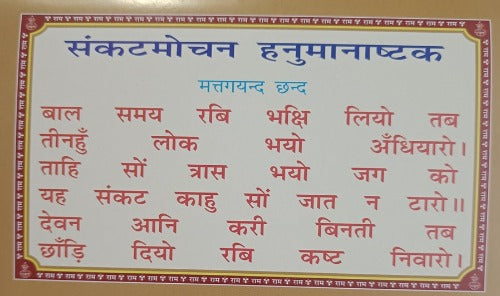 संकटमोचन हनुमानाष्टक
मत्तगयन्द छन्द
बाल समय रबि भक्षि लियो तब
तीनहुँ लोक भयो अँधियारो।
ताहि सों त्रास भयो जग को
यह संकट काहु सों जात न टारो॥
देवन आनि करी बिनती तब
छाँड़ि दियो रबि कष्ट निवारो।